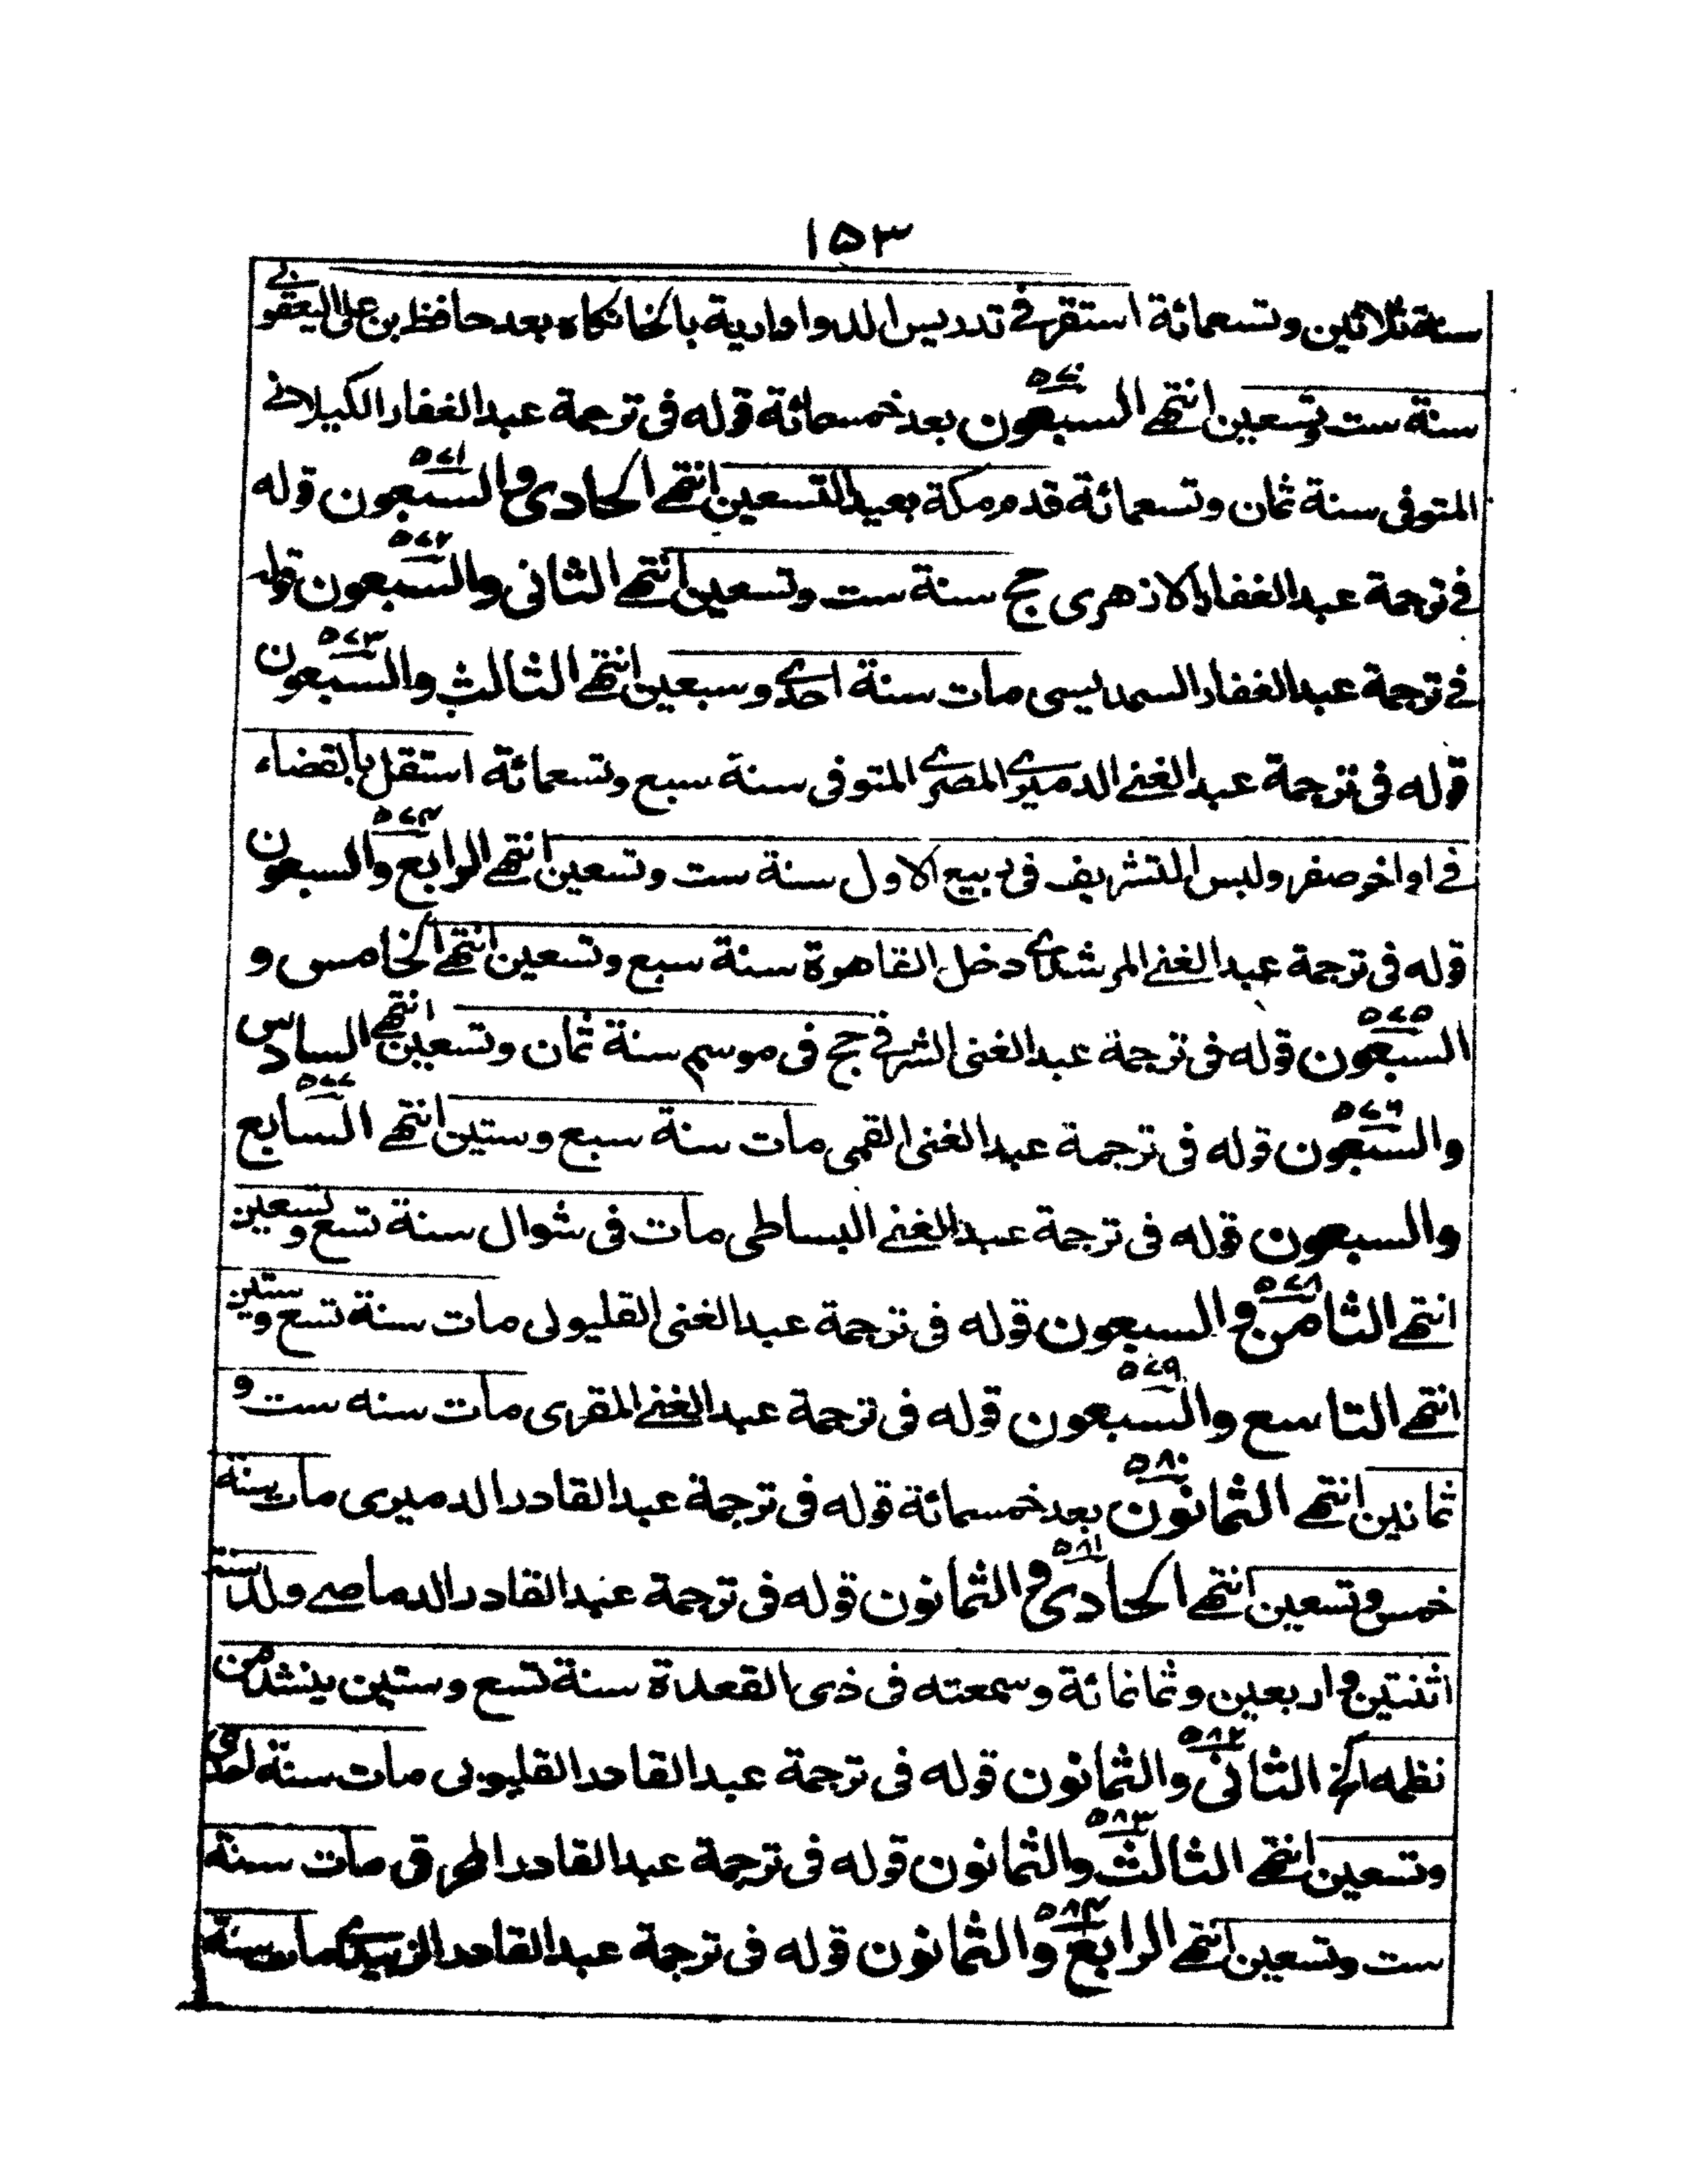 ١٥٣
سنة ثلاثين وتسعمائة استقر في تدريس الدوادارية بالخانكاه بعد حافظ بن على اليعقوبي
سنة ست وتسعين انتهى السبعون ٥٧٠ بعد خمسمائة قوله فى ترجمة عبد الغفار الكيلانى
المتوفى سنة ثمان وتسعمائة قدم مكة بعيد التسعين انتهى الحادى والسبعون ٥٧١ قوله
فى ترجمة عبد الغفار الازهرى حج سنة ست وتسعين انتهى الثانى والسبعون ٥٧٢ قوله
فى ترجمة عبد الغفار السمديسى مات سنة احدى وسبعين انتهى الثالث والسبعون ٥٧٣
قوله فى ترجمة عبد الغنى الدميرى المصرى المتوفى سنة سبع وتسعمائة استقل بالقضاء
فى اواخر صفر ولبس التشريف فى ربيع الاول سنة ست وتسعين انتهى الرابع والسبعون ٥٧٤
قوله فى ترجمة عبد الغنى المرشدى دخل القاهرة سنة سبع وتسعين انتهى الخامس و
السبعون ٥٧٥ قوله فى ترجمة عبد الغنى الشرفى حج فى موسم سنة ثمان وتسعين انتهى السادس
والسبعون ٥٧٦ قوله فى ترجمة عبد الغنى القمى مات سنة سبع وستين انتهى السابع ٥٧٧
والسبعون قوله فى ترجمة عبد الغنى البساطى مات فى شوال سنة تسع وتسعين
انتهى الثامن والسبعون ٥٧٨ قوله فى ترجمة عبد الغنى القليولى مات سنة تسع وستين
انتهى التاسع والسبعون ٥٧٩ قوله فى ترجمة عبد الغنى المقرى مات سنه ست و
ثمانين انتهى الثمانون ٥٨٠ بعد خمسمائة قوله فى ترجمة عبد القادر الدميرى مات سنة
خمس وتسعين انتهى الحادى والثمانون ٥٨١ قوله فى ترجمة عبد القادر الدماصى ولد سنة
اثنتين واربعين وثمانمائة وسمعته فى ذى القعدة سنة تسع وستين ينشد من
نظمه الخ الثانى والثمانون ٥٨٢ قوله فى ترجمة عبد القادر القليوبى مات سنة احدى
وتسعين انتهى الثالث والثمانون ٥٨٣ قوله فى ترجمة عبد القادر مات سنة
ست وتسعين انتهى الرابع والثمانون ٥٨٤ قوله فى ترجمة عبد القادر الزبيدى مات سنة